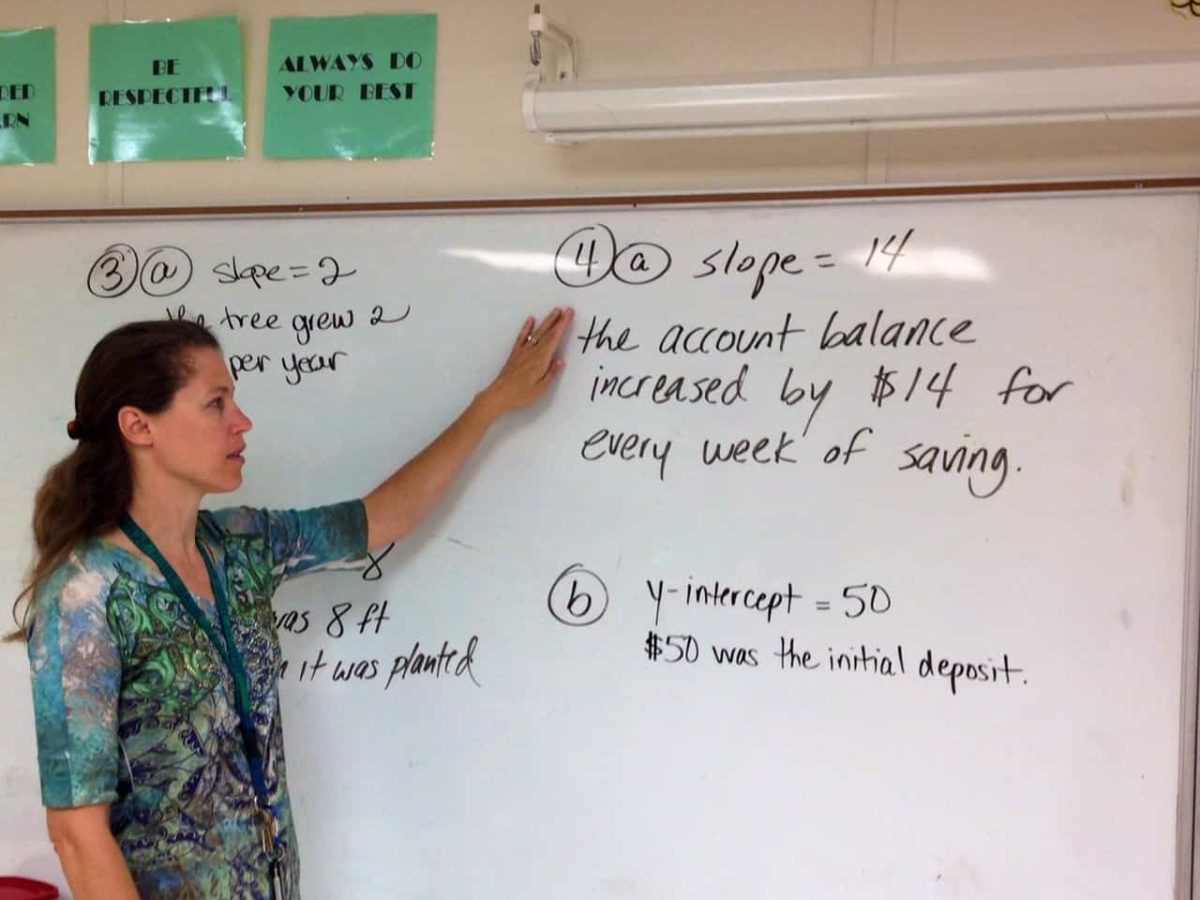 BE
RESPECTFUL
ALWAYS DO
YOUR BEST
3 a slope = 2
the tree grew 2
per year
8
was 8 ft
it was planted
4 a slope = 14
the account balance
increased by $14 for
every week of saving.
b y-intercept = 50
$50 was the initial deposit.